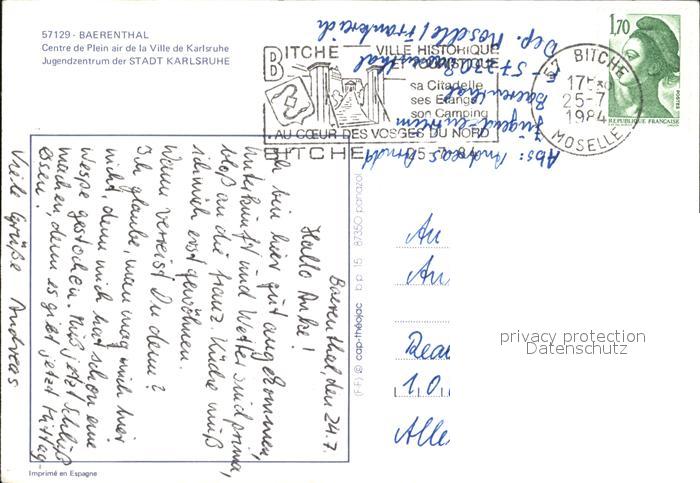 57129 - BAERENTHAL
Centre de Plein air de la Ville de Karlsruhe
Jugendzentrum der STADT KARLSRUHE
Baerenthal, den 24.7.
Hallo Anke!
Ich bin hier gut angekommen,
Unterkunft und Wetter sind prima,
bloß an die franz. Küche muß
ich mich erst gewöhnen.
Wann verreist Du denn?
Ich glaube, man mag mich hier
nicht, denn mich hat schon eine
Wespe gestochen. Muß jetzt Schluß
machen, denn es gibt jetzt Mittag
essen!
Viele Grüße Andreas
Imprimé en Espagne
(F-F) © cap-théojac b.p. 15 87350 panazol
Abs: Andreas Arndt
Jugendzentrum
Baerenthal
Baerenthal
Dep. Moselle/Frankreich
BITCHE VILLE HISTORIQUE
ET TOURISTIQUE
sa Citadelle
ses Etangs
son Camping
AU CŒUR DES VOSGES DU NORD
BITCHE
57 BITCHE
17H
25-7
1984
MOSELLE
1,70
POSTES
REPUBLIQUE FRANÇAISE
An
An
1 0
Alle
privacy protection
Datenschutz